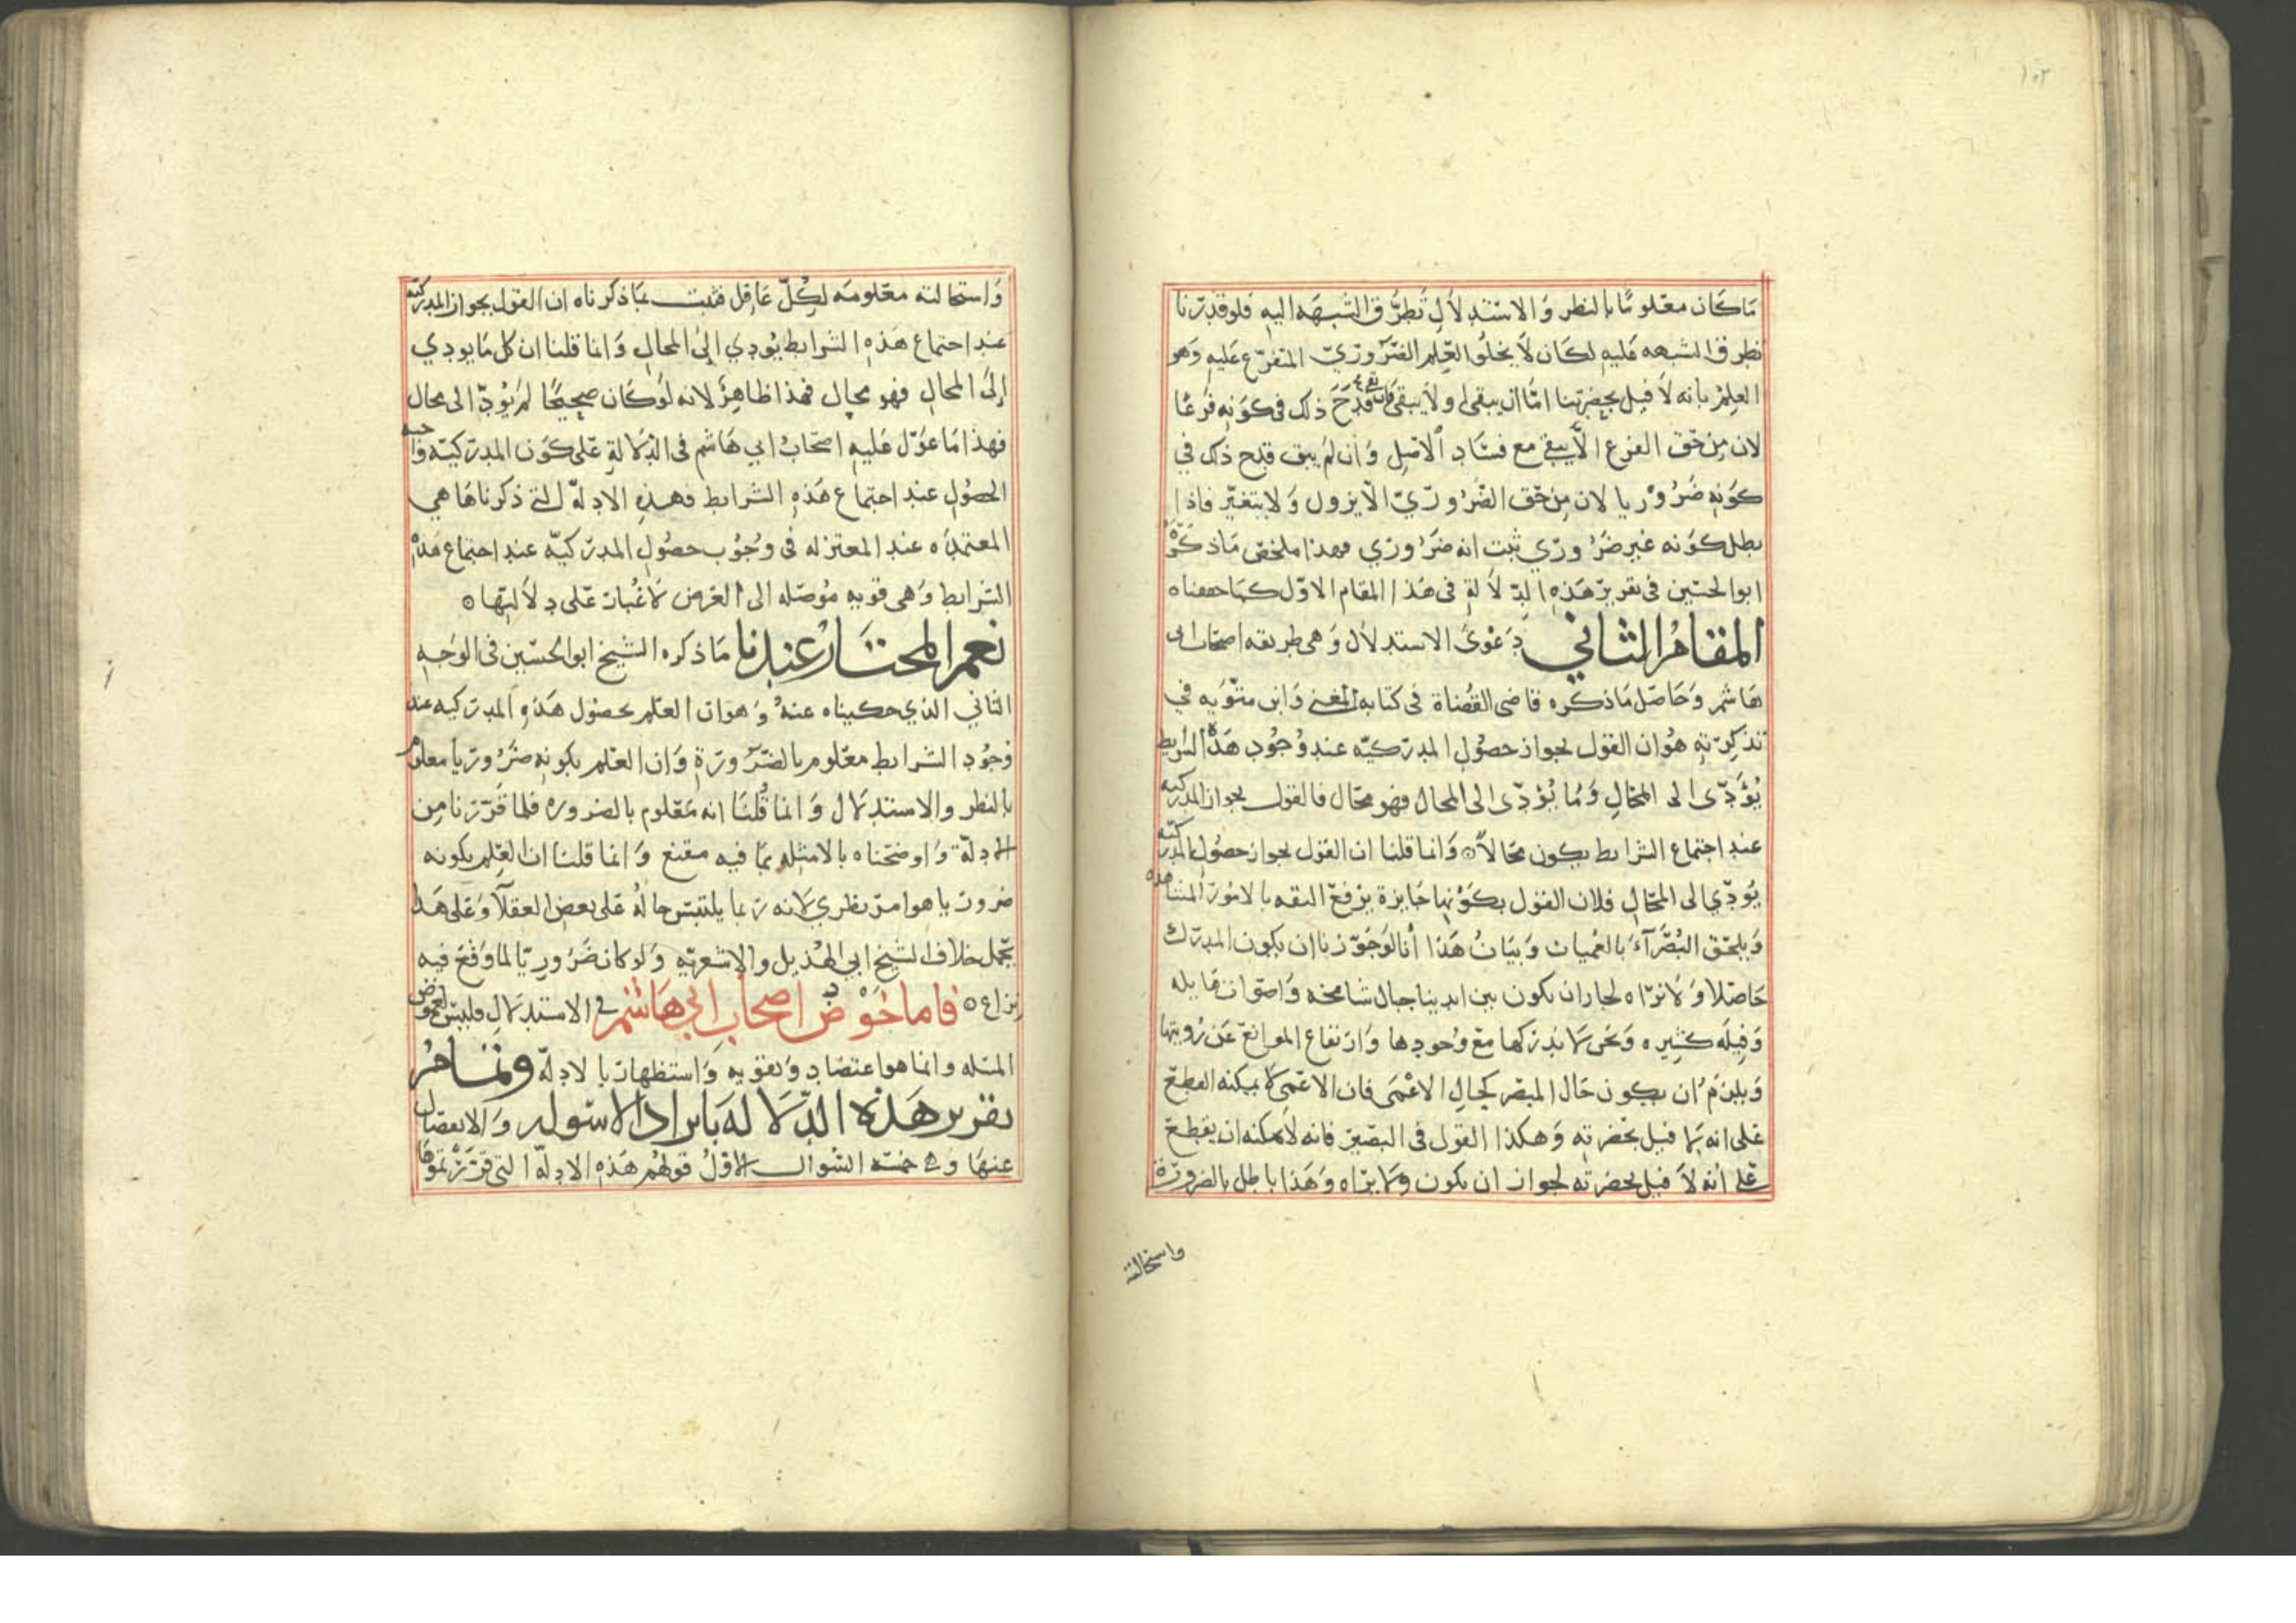 ١٠٢
مَا كَان معْلومًا بالنظر وَالاسْتدلاَل تُطرُّق الشبهَه اليهِ فلو قدّرنا
تطرق الشبهه عَليهِ لكَان لاَ يخلُوا العِلم الضَّروريّ المتفرّع عَليهِ وَهو
العِلمْ بانه لاَ فيل بحِضرتنا امّا ان يبقى او لاَ يبقى فان بقي قدَحَ ذلك في كوَنهِ فرعًا
لان مِن حَق الفرع الاَّ يبقى مع فسَاد الاصْلِ وَان لمْ يبق قدح ذلك في
كوَنهِ ضَرُوْريا لان مِن حَق الضّرُوريّ الاّ يزول وَلا يتغيّر فاذا
بطل كوَنه غير ضَرُوري ثبت انه ضَرُوري فهذا ملخص مَا ذكرَهْ
ابوا الحسَين في تقرير هَذهِ الدّلاَلةِ في هَذا المقام الاوّل كمَا حققناه
المقامُ الثاني دَعْوَى الاستدلاَل وَهى طريقه اصحَاب ابى
هَاشم وَحَاصَل مَا ذكره قاضى القُضاة في كتابه المغنى وَابن متّوَيه في
تذكرتهِ هُو ان القول بجواز حصُولِ المدرَكيّه عند وُجُودِ هَذه الشرايط
يُؤَدّى الى المحَالِ وَمُا يُؤدّى الى المحال فهو محَال فالقول بجواز المدركيه
عند اجتماع الشرايط يكون محَالاً ٥ وَانما قلنا ان القول بجواز حصُول المدركيّه
يُودّي الى المحَالِ فلان القول بكوَنها جَايزة يرفعَ الثقه بالامُور المشاهده
وَيلحَق البُصَرآءَ بالعُميان وَبيَانُ هَذا أنا لوَ جَوّزنا ان يكون المدرَك
حَاصَلا وَلاَ نرَاه لجاز ان يكون بين ايدينا جبال شامخه وَاصَوات هَايله
وَفِيلَه كثيره وَنحَن لاَ ندركها معَ وُجودها وَارتفاع الموانعَ عَن رُويتها
وَيلزمُ ان يكون حَال المبصَر كحَالِ الاعْمَى فان الاعْمى لاَ يمكنه القطعَ
عَلى انه لاَ فيل بحَضرتهِ وَهكذا القول في البصَير فانه لاَ يمكنه ان يقطعَ
عَلى انه لاَ فيل بحضرته لجواز ان يكون وَلاَ يرَاه وَهَذا باطل بالضرورَة
واستحالته
وَاستحالته معَلومَه لِكُلّ عَاقِل فثبت بمَا ذكرناه ان القول بجواز المدركيّه
عند اجتماع هَذهِ الشرايط يُودي إلىَ المحَالِ وَانما قلنا ان كل مَا يودي
إلىَ المحَالِ فهو محال فهذا ظاهِرٌ لانه لوَ كَان صحِيحًا لمْ يُوَدّ الى محال
فهذا مَا عوَّل عَليهِ اصحَابُ ابي هَاشم في الدّلاَلةِ عَلى كوَن المدرَكيّه وَاجبه
الحصُولِ عند اجتماع هَذهِ الشرايط فهذهِ الادِلهّ التى ذكرناهَا هي
المعتمدَه عند المعتزله في وُجُوب حصُولِ المدرَكيّه عند اجتماع هَذهْ
الشرايط وَهى قويه مُوصَله الى الغرض لاَ غُبار عَلى دِلاَلتِها ٥
نعم المختَارُ عندنا مَا ذكره الشيخ ابوا الحُسَين في الوَجهِ
الثاني الذي حكيناه عنهُ وَهو ان العلم بحصُول هَذهِ المدرَكيه عند
وُجُودِ الشرايط معَلوم بالضّرورَةِ وَان العلم بكونهِ ضَرُوريا معلوم
بالنظر والاستدلاَل وَانما قُلنَا انه معَلوم بالضروره فلما قَرّرنا مِن
الادلهّ وَاوضحَناه بالامثله بمَا فيه مقنع وَانما قلنا ان العِلم بكونه
ضرورَيا هوا مرَ نظري لاَنه رَبما يلتبسَ حالهُ عَلى بعض العقلآ وَعَلى هَذا
يحَمل خلاف الشيخ ابي الهُذيل والاشعريّهِ وَلو كان ضَرُوريّا لما وَقعَ فيه
نِزاع ٥ فاما خَوْضُ اصحَابِ ابي هَاشم في الاستدلاَلِ فليسَ لغموض
المسَله وانما هوا عتضاد وَتقويه وَاستظهارَ بالادلهّ وتمامُ
تقرير هَذهِ الدّلاَلهَ بايراد الاسَوله وَالانفصَال
عنهَا وَهي خمسَه السّوال الاوّلُ قولهُم هَذهِ الادِلهّ التى قرّرَتموهَا